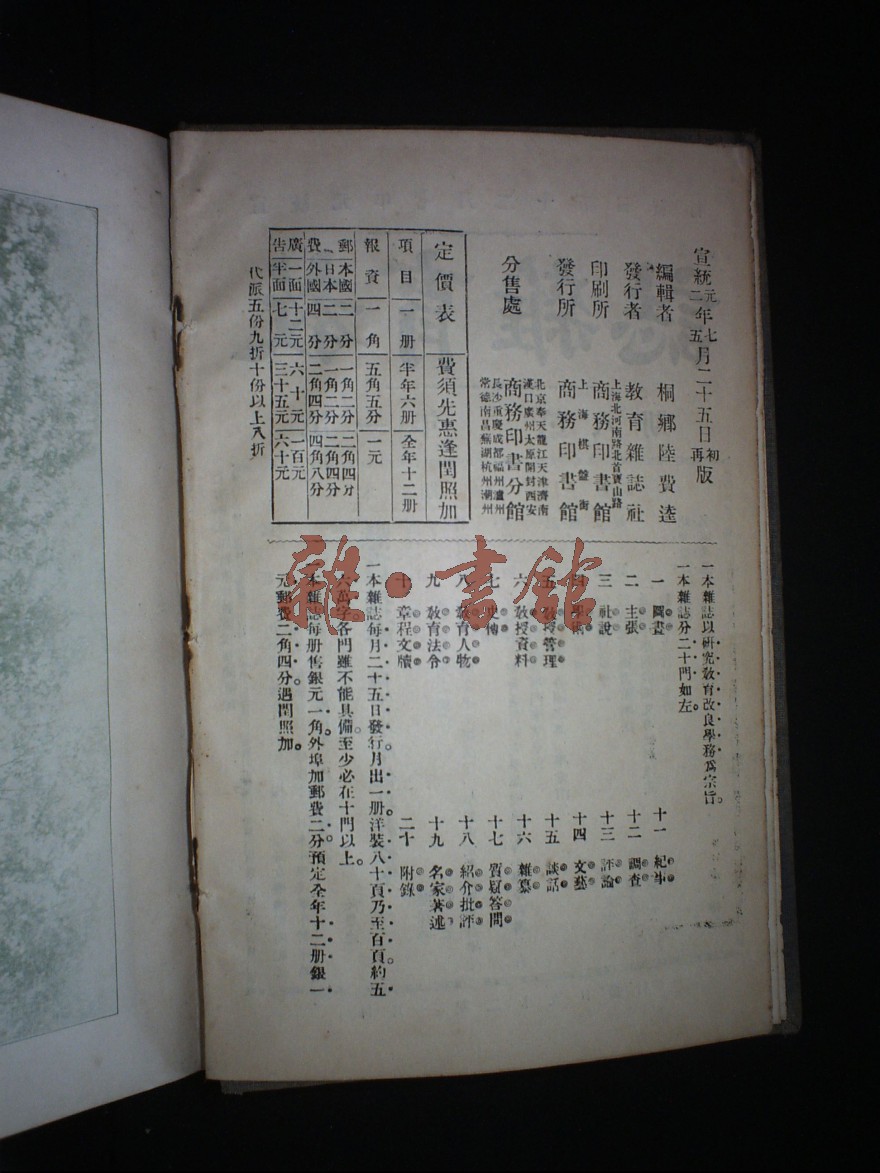 宣統元年七月二十五日初版
二年五月再版
編輯者 桐鄉陸費逵
發行者 教育雜誌社
上海北河南路北首寶山路
印刷所 商務印書館
上海棋盤街
發行所 商務印書館
北京奉天龍江天津濟南
漢口廣州太原開封西安
分售處 商務印書分館
長沙重慶成都福州瀘州
常德南昌蕪湖杭州潮州
定價表 費須先惠逢閏照加
項目 一册 半年六册 全年十二册
報資 一角 五角五分 一元
郵費 本國 二分 一角二分 二角四分
日本 二分 一角二分 二角四分
外國 四分 二角四分 四角八分
廣告 一面 十二元 六十元 一百元
半面 七元 三十五元 六十元
代派五份九折十份以上八折
一本雜誌以研究教育改良學務爲宗旨。
一本雜誌分二十門如左。
一 圖畫 十一 紀事
二 主張 十二 調查
三 社說 十三 評論
四 學術 十四 文藝
五 教授管理 十五 談話
六 教授資料 十六 雜纂
七 史傳 十七 質疑答問
八 教育人物 十八 紹介批評
九 教育法令 十九 名家著述
十 章程文牘 二十 附錄
一本雜誌每月二十五日發行月出一册。洋裝八十頁乃至百頁約五
六萬字各門雖不能具備。至少必在十門以上。
一本雜誌每册售銀元一角。外埠加郵費二分。預定全年十二册銀一
元郵費二角四分。遇閏照加。
雜·書館